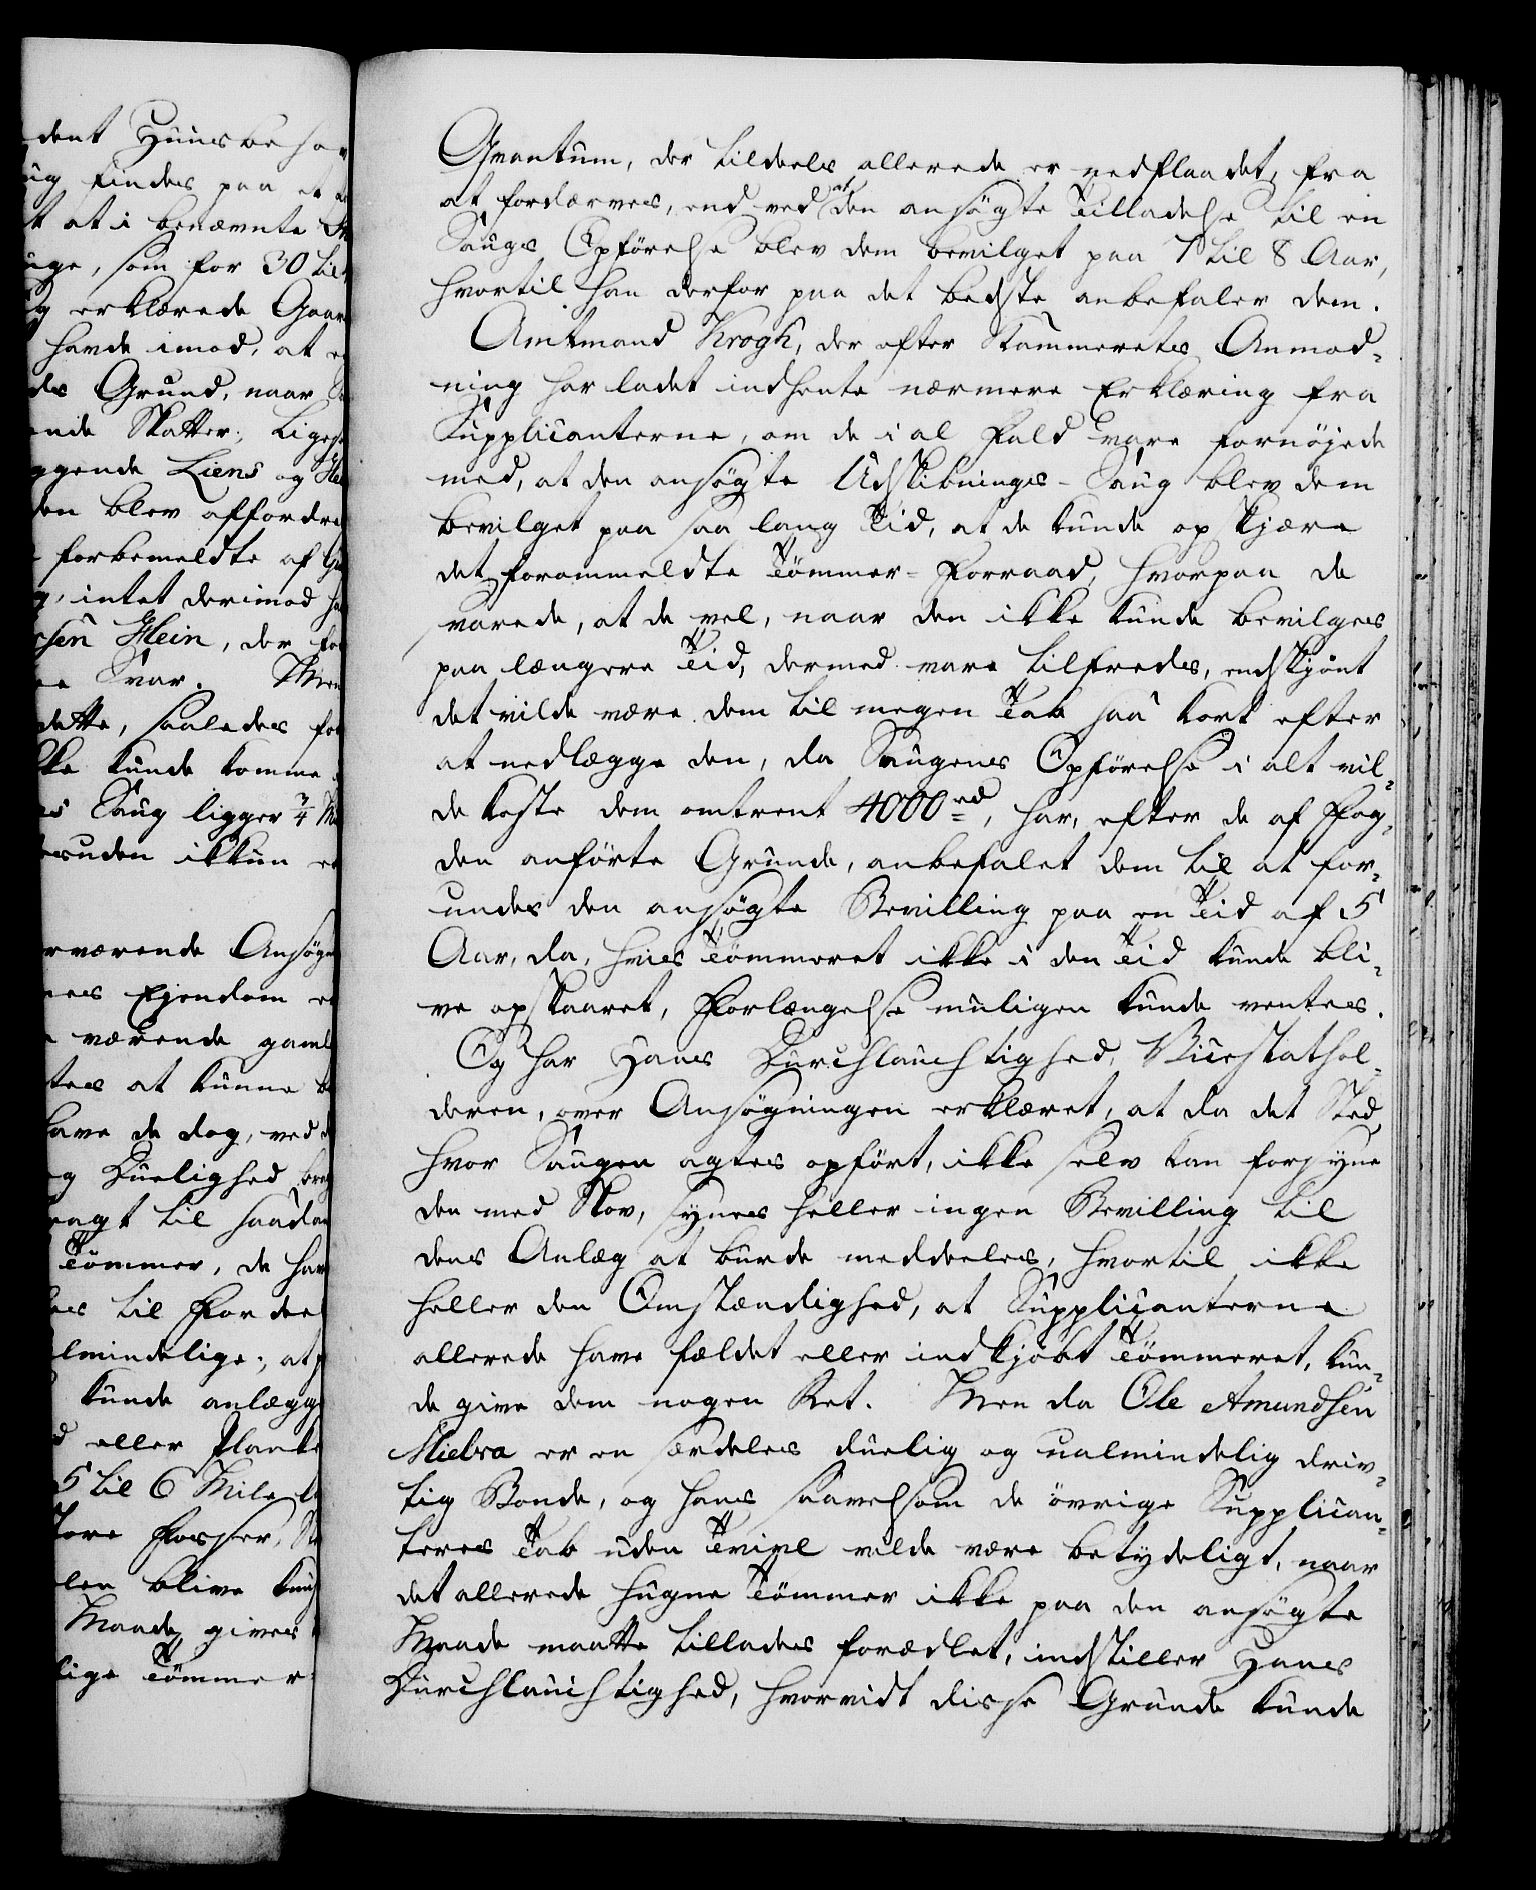 dent Huusbehov
ug findes paa et
t at i benævnte
uge, som for 30 til
g erklærede Gaar
havde imod, at
des Grund, naar
ende Skatter; Ligeså
ggende Liens og
den blev affordret
forbemeldte af
g, intet derimod
sen Klein, der
Svar. Men
dette, saaledes
kke kunde komme
s Saug ligger 3/4
esuden ikkun
rværende Ansøgn
nes Ejendom
værende gaml
tes at kunne
have de dog, ved
g Duelighed
ragt til saadan
Tömmer, de hav
es til Fordeel
lmindelige; at
kunde anlægg
d eller Planke
5 til 6 Mile
store Fosser,
len blive
Maade gives
lige Tömmer
Qvantum, der tildeels allerede er nedflaadet, fra
at fordærves, end ved at den ansøgte Tilladelse til en
Saugs Opförelse blev dem bevilget paa 7 til 8 Aar,
hvortil han derfor paa det bedste anbefaler dem.
Amtmand Krogh, der efter Kammerets Anmod-
ning har ladet indhente nærmere Erklæring fra
Supplicanterne, om de i al Fald vare fornøjede
med, at den ansøgte Udskibnings-Saug blev dem
bevilget paa saa lang Tid, at de kunde opskjære
det forommeldte Tömmer-Forraad, hvorpaa de
svarede, at de vel, naar den ikke kunde bevilges
paa længere Tid, dermed vare tilfreds, endskjønt
det vilde være dem til megen Tab saa kort efter
at nedlægge den, da Saugens Opførelse i alt vil-
de koste dem omtrent 4000 rd, har, efter de af Fog-
den anførte Grunde, anbefalet dem til at for-
undes den ansøgte Bevilling paa en Tid af 5
Aar, da, hvis Tömmeret ikke i den Tid kunde bli-
ve opskaaret, Forlængelse muligen kunde ventes.
Og har Hans Durchlauchtighed, Vicestathol-
deren, over Ansøgningen erklæret, at da det Sted,
hvor Saugen agtes opført, ikke selv kan forsyne
den med Skov, synes heller ingen Bevilling til
dens Anlæg at burde meddeeles, hvortil ikke
heller den Omstændighed, at Supplicanterne
allerede have fældet eller indkjøbt Tömmeret, kun-
de give dem nogen Ret. Men da Ole Amundsen
Mielva er en særdeles duelig og ualmindelig driv-
tig Bonde, og hans saavelsom de övrige Supplican-
teres Tab uden Tvivl vilde være betydeligt, naar
det allerede hugne Tömmer ikke paa den ansøgte
Maade maatte tillades forædlet, indstiller Hans
Durchlauchtighed, hvorvidt disse Grunde kunde